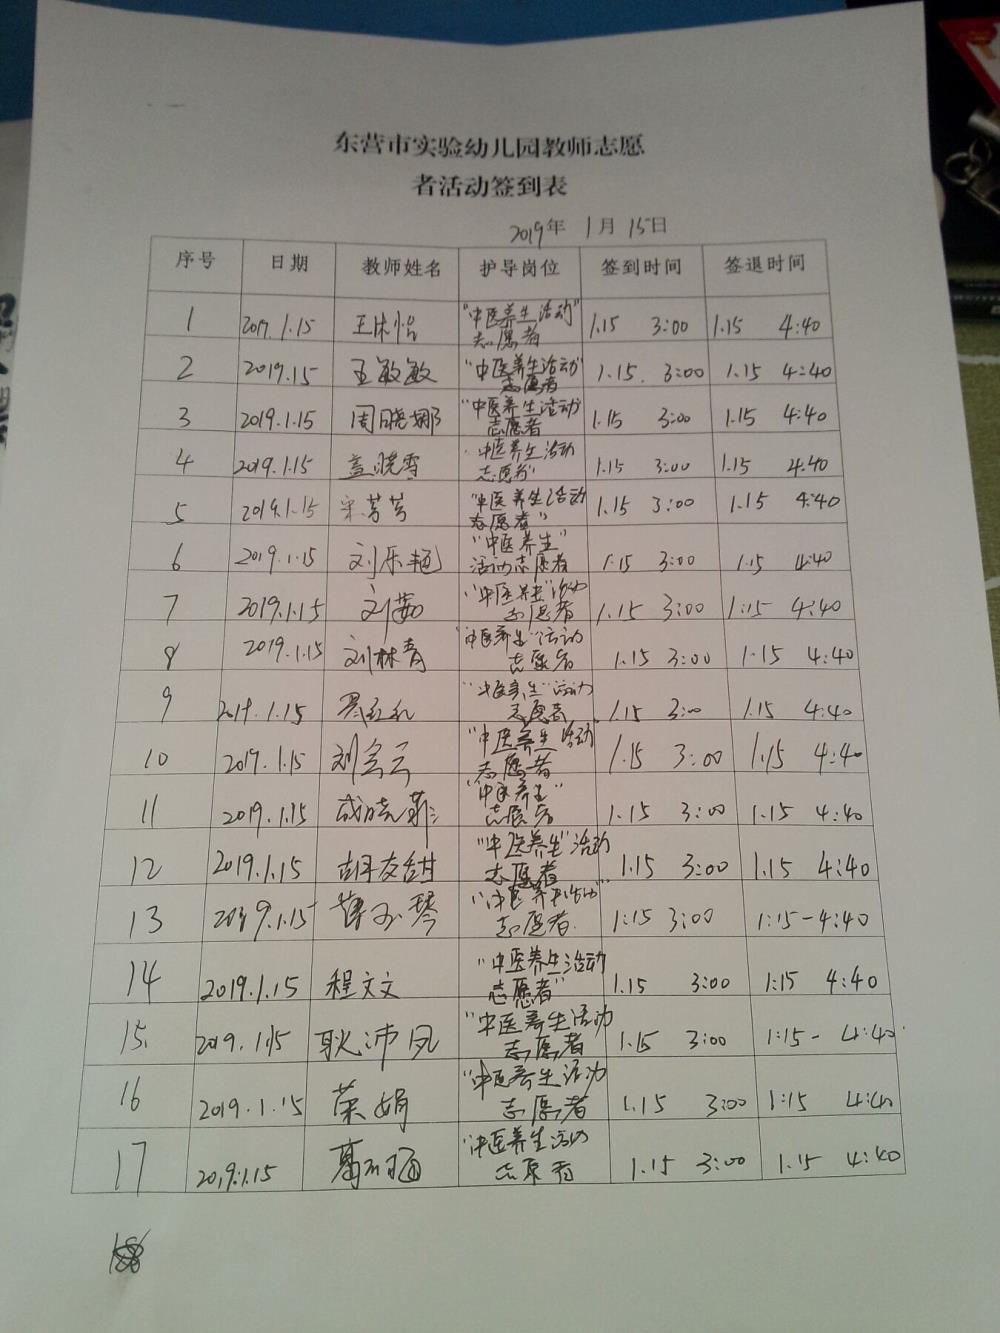 东营市实验幼儿园教师志愿
者活动签到表
2019年 1月 15日
序号 日期 教师姓名 护导岗位 签到时间 签退时间
1 2019.1.15 "中医养生活动" 志愿者 1.15 3:00 1.15 4:40
2 2019.15 王敏敏 "中医养生活动" 志愿者 1.15. 3:00 1.15 4:40
3 2019.1.15 周晓娜 "中医养生活动" 志愿者 1.15 3:00 1.15 4:40
4 2019.1.15 盖晓雪 "中医养生活动 志愿者" 1.15 3:00 1.15 4:40
5 2019.1.15 宋芳芳 "中医养生活动 志愿者" 1.15 3:00 1.15 4:40
6 2019.1.15 刘乐艳 "中医养生" 活动志愿者 1.15 3:00 1.15 4:40
7 2019.1.15 刘茹 "中医养生"活动 志愿者 1.15 3:00 1:15 4:40
8 2019.1.15 刘林青 "中医养生"活动 志愿者 1.15 3:00 1.15 4:40
9 2019.1.15 "中医养生"活动 志愿者 1.15 3:00 1.15 4:40
10 2019.1.15 "中医养生活动 志愿者 1.15 3:00 1.15 4:40
11 2019.1.15 成晓菲 "中医养生" 志愿者 1.15 3:00 1.15 4:40
12 2019.1.15 胡友甜 "中医养生"活动 志愿者 1.15 3:00 1.15 4:40
13 2019.1.15 "中医养生活动" 志愿者. 1:15 3:00 1:15-4:40
14 2019.1.15 程文文 "中医养生活动 志愿者" 1.15 3:00 1:15 4:40
15 2019.1.15 耿沛凤 "中医养生活动 志愿者 1.15 3:00 1:15- 4:40
16 2019.1.15 荣娟 "中医养生活动 志愿者 1.15 3:00 1:15 4:40
17 2019.1.15 "中医养生活动 志愿者 1.15 3:00 1.15 4:40